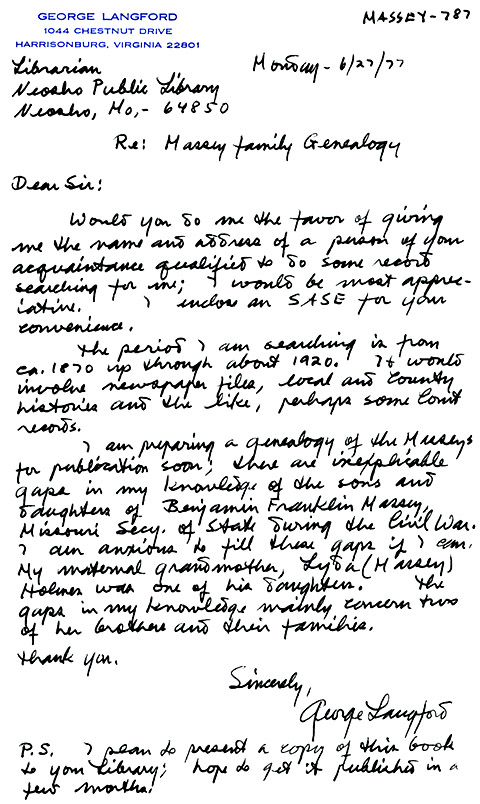 GEORGE LANGFORD
1044 CHESTNUT DRIVE
HARRISONBURG, VIRGINIA 22801
MASSEY-787
Monday- 6/27/77
Librarian
Neosho Public Library
Neosho, Mo,- 64850
Re: Massey Family Genealogy
Dear Sir:
Would you do me the favor of giving
me the name and address of a person of your
acquaintance qualified to do some record
searching for me; I would be most appre-
ciative. I enclose an SASE for your
convenience.
The period I am searching is from
ca. 1870 up through about 1920. It would
involve newspaper files, local and County
histories and the like, perhaps some Court
records.
I am preparing a genealogy of the Masseys
for publication soon; there are inexplicable
gaps in my knowledge of the sons and
daughters of Benjamin Franklin Massey,
Missouri Secy. of State during the Civil War.
I am anxious to fill these gaps if I can.
My maternal grandmother, Lyda (Massey)
Holmes was one of his daughters. The
gaps in my knowledge mainly concern two
of her brothers and their families.
Thank you.
Sincerely,
George Langford
P.S. I plan to present a copy of this book
to your Library; hope to get it published in a
few months.